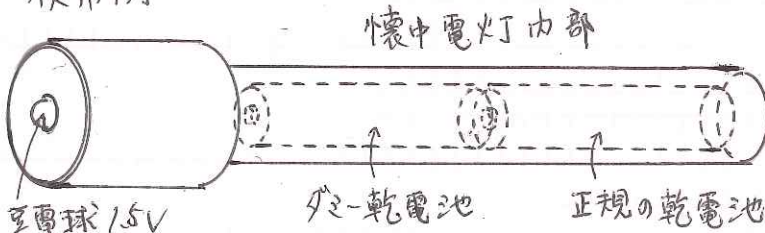 懐中電灯内部
豆電球 1.5V
ダミー乾電池
正規の乾電池